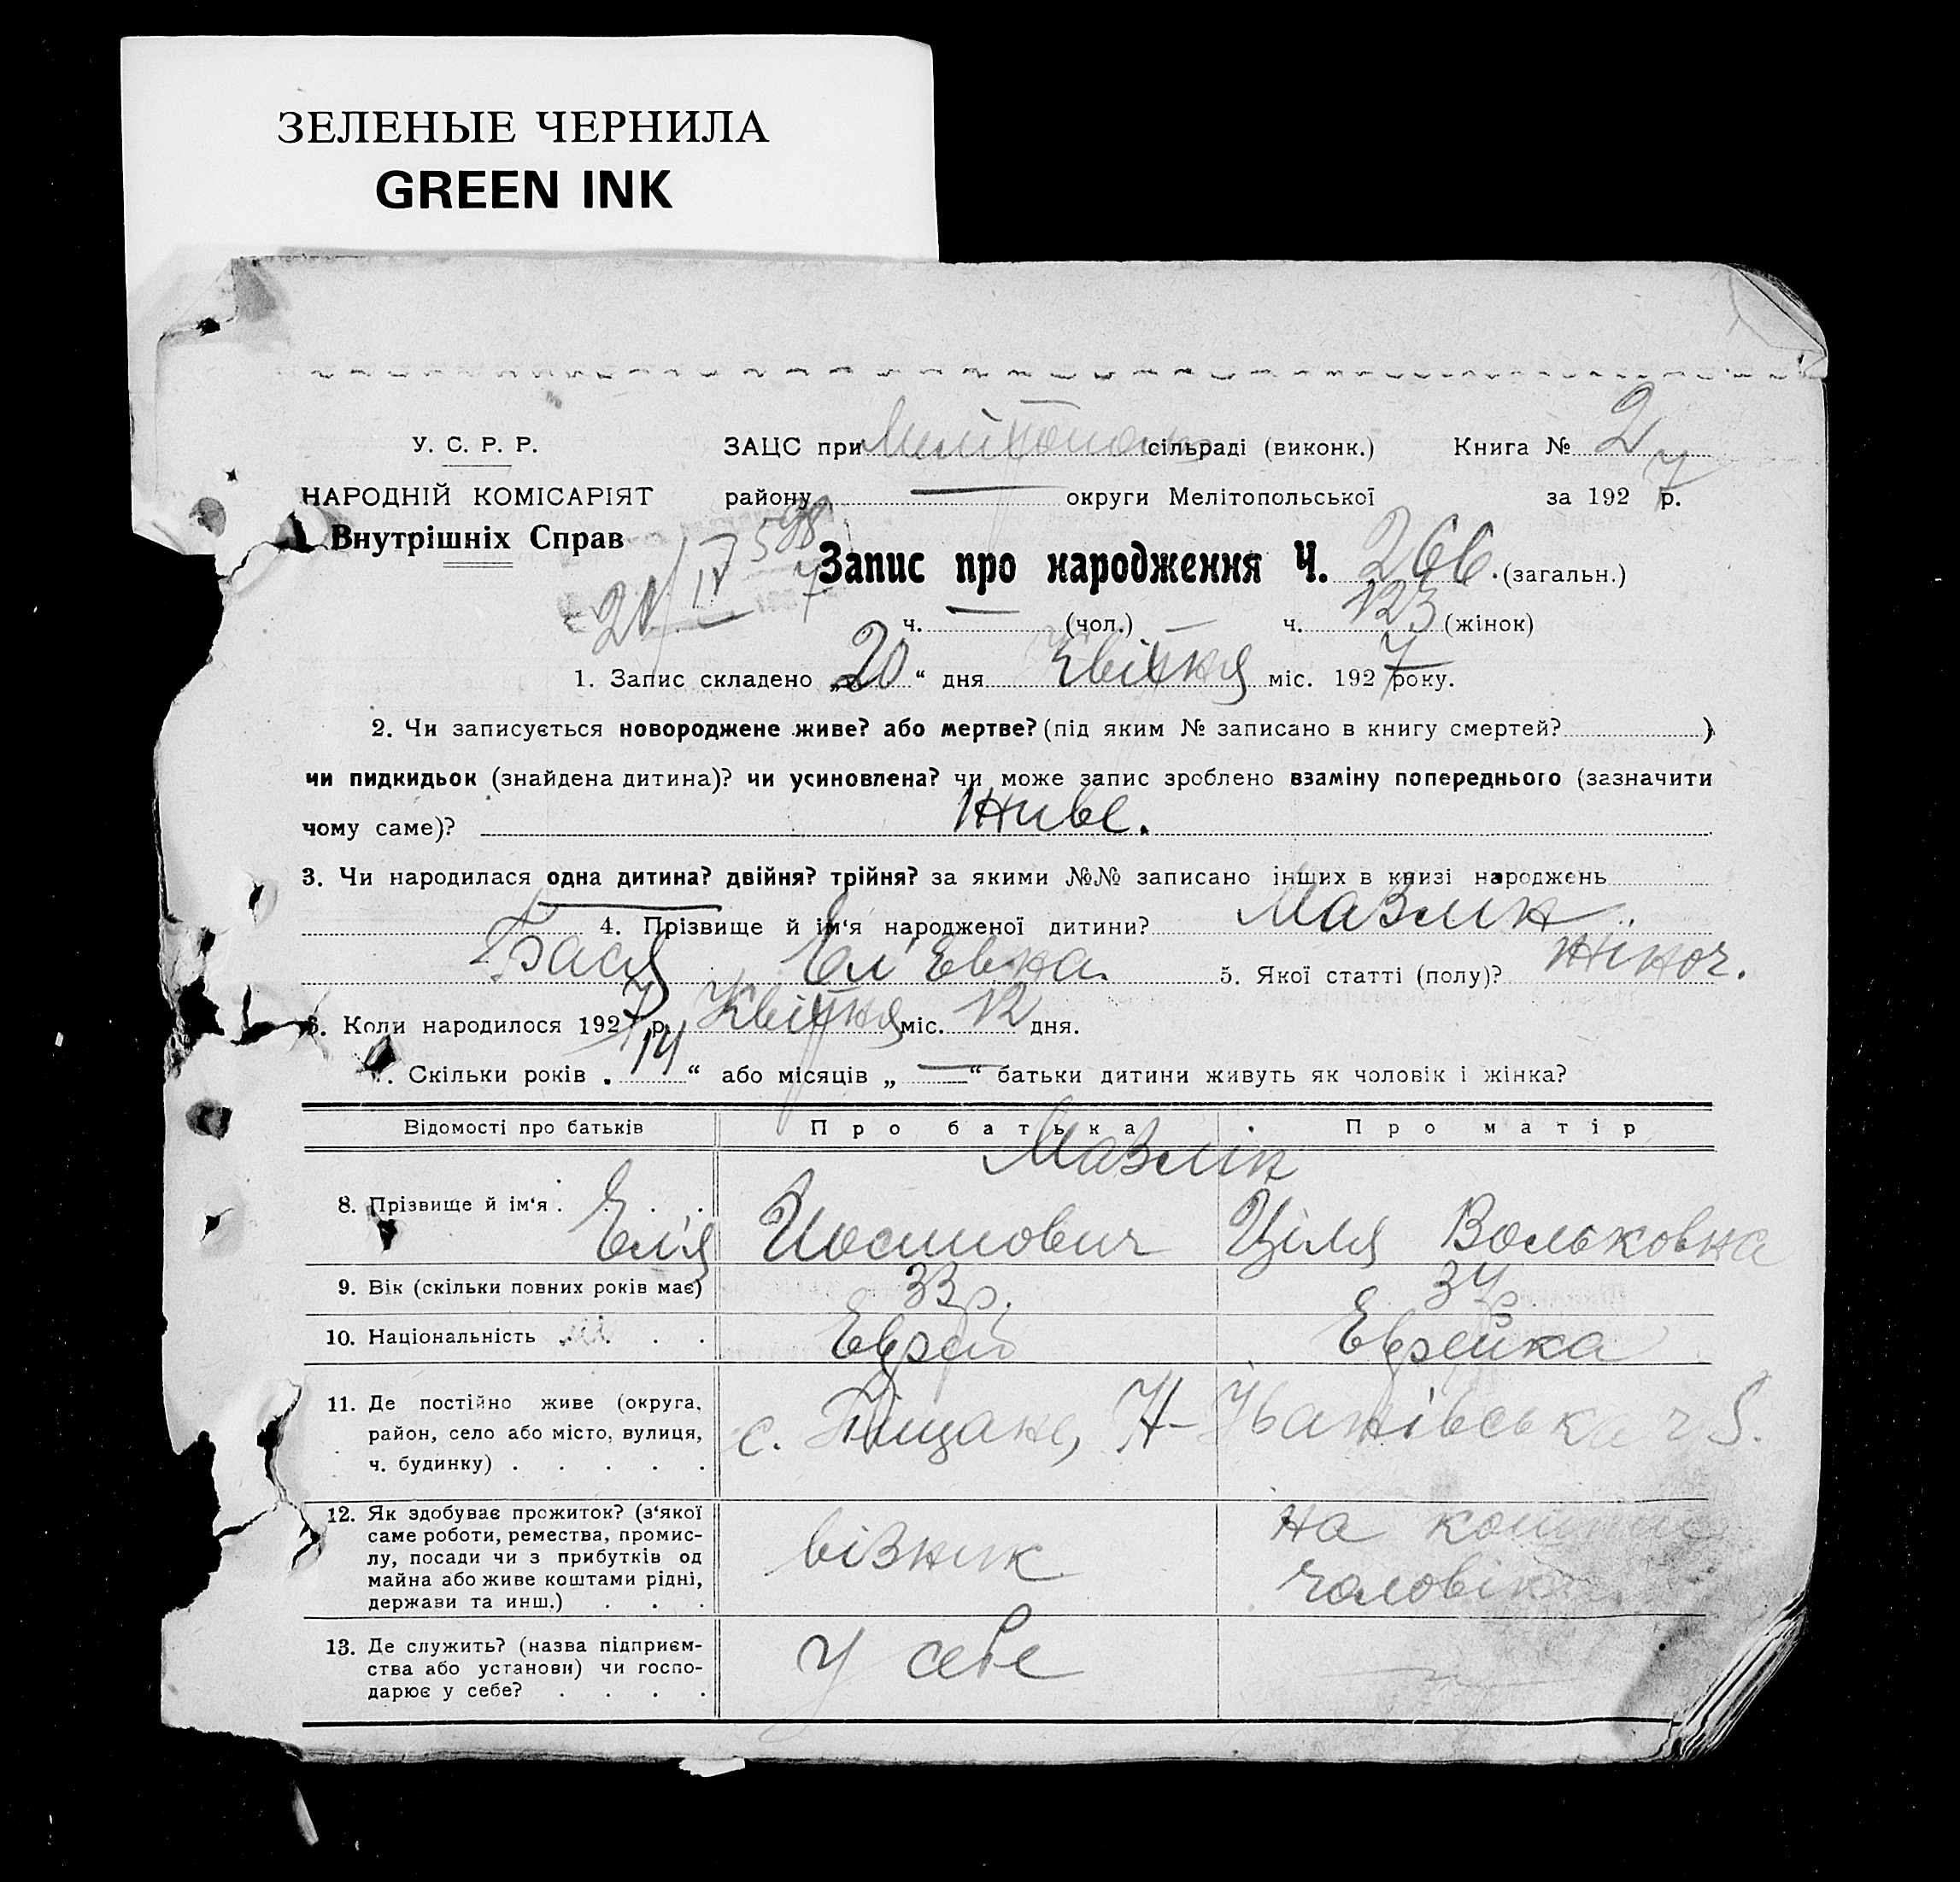 ЗЕЛЕНЫЕ ЧЕРНИЛА
GREEN INK
У. С. Р. Р.
НАРОДНІЙ КОМІСАРІЯТ
Внутрішніх Справ
ЗАЦС при сільраді (виконк.) Книга № 2
району — округи Мелітопольської за 1927 р.
Запис про народження Ч. 266. (загальн.)
ч. — (чол.) ч. 123 (жінок)
1. Запис складено „20“ дня Квітня міс. 1927 року.
2. Чи записується новороджене живе? або мертве? (під яким № записано в книгу смертей? )
чи пидкидьок (знайдена дитина)? чи усиновлена? чи може запис зроблено взаміну попереднього (зазначити
чому саме)? Живе.
3. Чи народилася одна дитина? двійня? трійня? за якими №№ записано інших в книзі народжень
4. Прізвище й ім‘я народженої дитини? Мазлин
Бася Ел'Евна. 5. Якої статті (полу)? жіноч.
6. Коли народилося 1927 р. Квітня міс. 12 дня.
7. Скільки років „14“ або місяців „—“ батьки дитини живуть як чоловік і жінка?
Відомості про батьків Про батька Про матір
Мазлин
8. Прізвище й ім‘я . Еля Йосипович Ціля Вольковна
9. Вік (скільки повних років має) 33 р. 34 р.
10. Національність . . . Еврей Еврейка
11. Де постійно живе (округа,
район, село або місто, вулиця,
ч. будинку) . . . . .
с. Піщане, Н-Іванівська ч 5.
12. Як здобуває прожиток? (з‘якої
саме роботи, ремества, промис-
лу, посади чи з прибутків од
майна або живе коштами рідні,
держави та инш.) . . .
візник
на кошти
чоловіка
13. Де служить? (назва підприєм-
ства або установи) чи госпо-
дарює у себе? . . . .
у себе